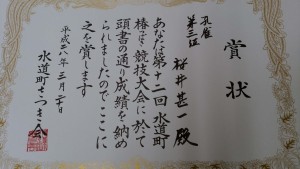 賞状
孔雀
第三位
桜井甚一殿
あなたは第十二回水道町
椿まつり競技大会に於て
頭書の通り成績を納め
られましたのでここに
之を賞します
平成二八年三月二十日
水道町さつき会